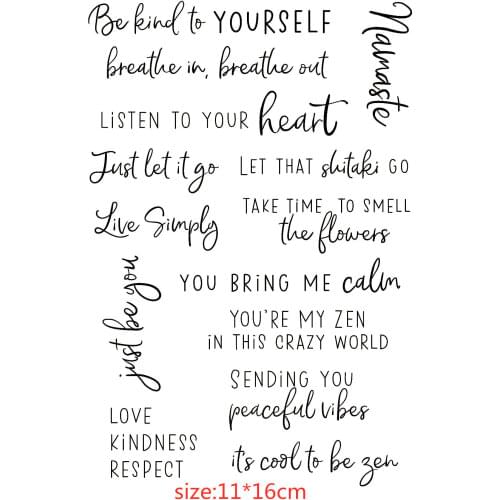 Be kind to YOURSELF
Namaste
breathe in, breathe out
LISTEN TO YOUR heart
Just let it go
LET THAT shitaki GO
Live Simply
TAKE TIME TO SMELL
the flowers
just be you
YOU BRING ME calm
YOU'RE MY ZEN
IN THIS CRAZY WORLD
SENDING YOU
peaceful vibes
LOVE
KINDNESS
RESPECT
it's cool to be zen
size:11*16cm